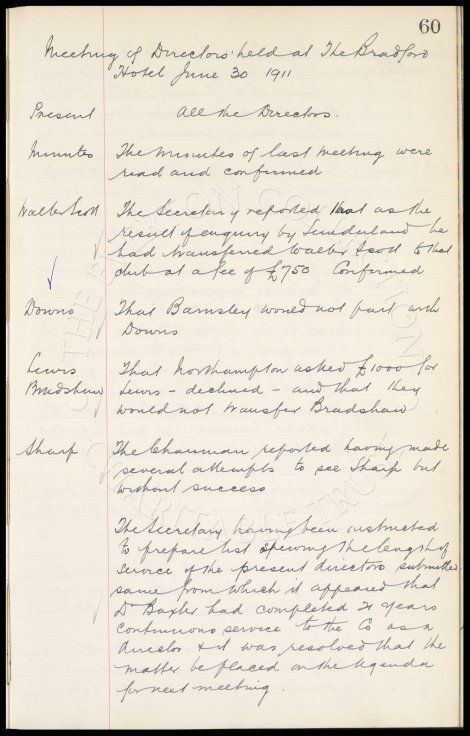 60
Meeting of Directors held at The Bradford
Hotel June 30 1911
Present All the Directors.
Minutes The Minutes of last Meeting were
read and confirmed
Walter Scott The Secretary reported that as the
result of enquiry by Sunderland he
had transferred Walter Scott to that
club at a fee of £750 Confirmed
Downs That Barnsley would not part with
Downs
Lewis That Northampton asked £1000 for
Bradshaw Lewis - declined - and that they
would not transfer Bradshaw
Sharp The Chairman reported having made
several attempts to see Sharp but
without success
The Secretary having been instructed
to prepare list showing the length of
service of the present directors submitted
same from which it appeared that
Dr Baxter had completed 21 years
continuous service to the Co as a
director & it was resolved that the
matter be placed on the Agenda
for next meeting.